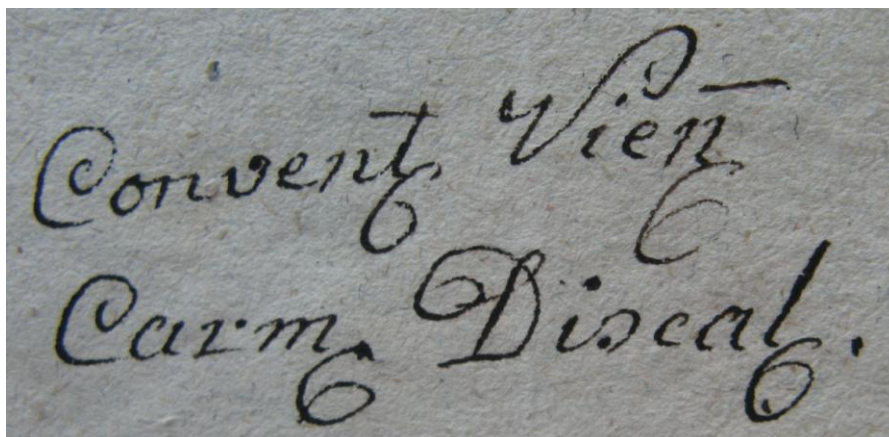 Convent Vieñ
Carm Discal.